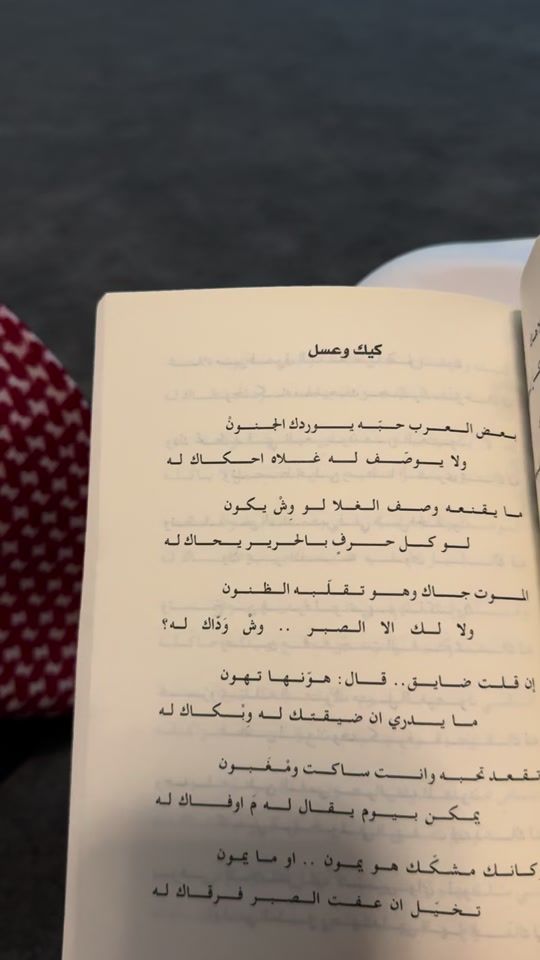 كيك وعسل
بعض العرب حبّه يوردك الجنونْ
ولا يوصّف له غلاه احكاك له
ما يقنعه وصف الغلا لو وِشْ يكون
لو كل حرفٍ بالحرير يحاك له
الموت جاك وهو تقلّبه الظنون
ولا لك الا الصبر .. وشْ وَدّاك له؟
إن قلت ضايق.. قال: هوّنها تهون
ما يدري ان ضيقتك له وِبْكاك له
تقعد تحبه وانت ساكت ومْغَبون
يمكن بيوم يقال له مَ اوفاك له
كانك مشكّك هو يمون .. او ما يمون
تخيّل ان عفت الصبر فرقاك له